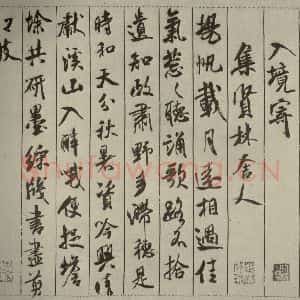 入境寄
集賢林舍人
揚帆載月遠相過佳
氣葱葱聽誦歌路不拾
遺知政肅野多滯穗是
時和天分秋暑資吟興晴
獻溪山入醉哦便捉蟾
蜍共研墨綵牋書盡剪
江波